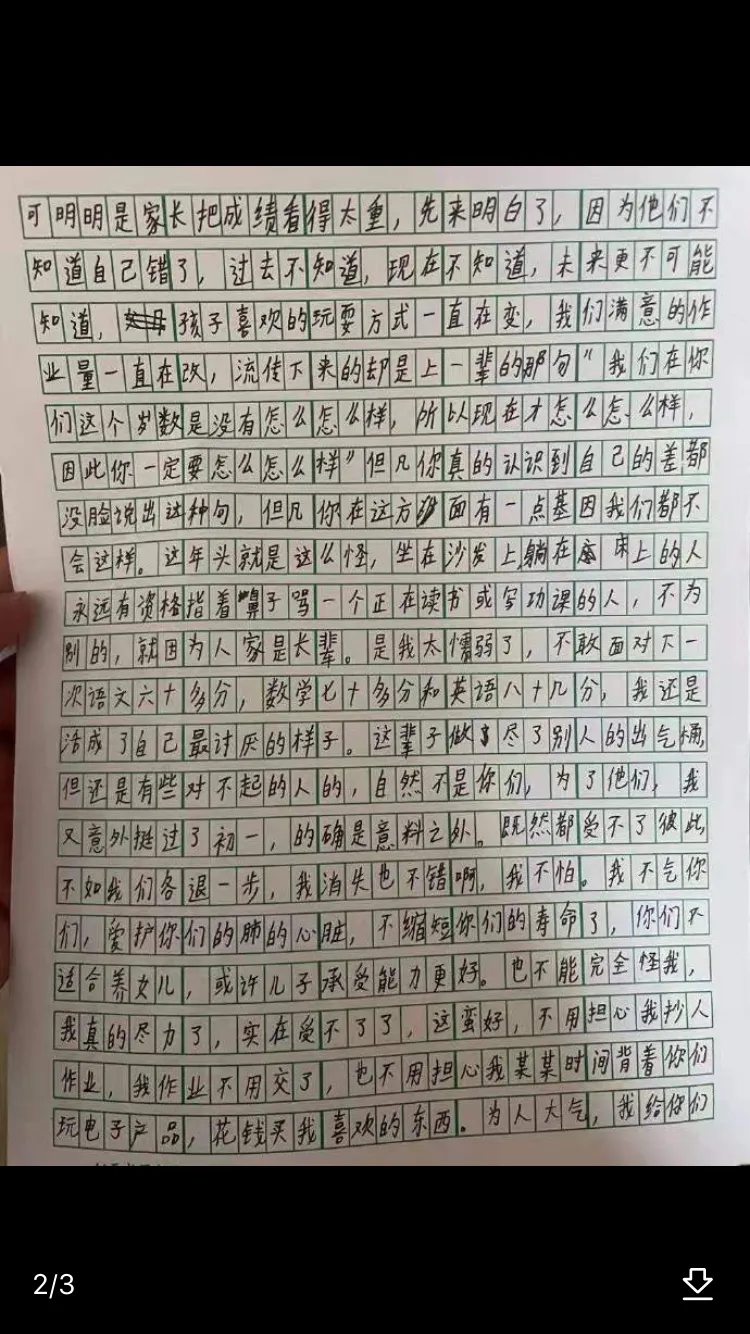 可明明是家长把成绩看得太重，先来明白了，因为他们不
知道自己错了，过去不知道，现在不知道，未来更不可能
知道，孩子喜欢的玩耍方式一直在变，我们满意的作
业量一直在改，流传下来的却是上一辈的那句“我们在你
们这个岁数是没有怎么怎么样，所以现在才怎么怎么样，
因此你一定要怎么怎么样”但凡你真的认识到自己的差都
没脸说出这种句，但凡你在这方面有一点基因我们都不
会这样。这年头就是这么怪，坐在沙发上躺在床上的人
永远有资格指着鼻子骂一个正在读书或写功课的人，不为
别的，就因为人家是长辈。是我太懦弱了，不敢面对下一
次语文六十多分，数学七十多分和英语八十几分，我还是
活成了自己最讨厌的样子。这辈子做尽了别人的出气桶，
但还是有些对不起的人的，自然不是你们，为了他们，我
又意外挺过了初一，的确是意料之外。既然都受不了彼此
不如我们各退一步，我消失也不错啊，我不怕。我不气你
们，爱护你们的肺的心脏，不缩短你们的寿命了，你们不
适合养女儿，或许儿子承受能力更好。也不能完全怪我，
我真的尽力了，实在受不了了，这蛮好，不用担心我抄人
作业，我作业不用交了，也不用担心我某某时间背着你们
玩电子产品，花钱买我喜欢的东西。为人大气，我给你们
2/3